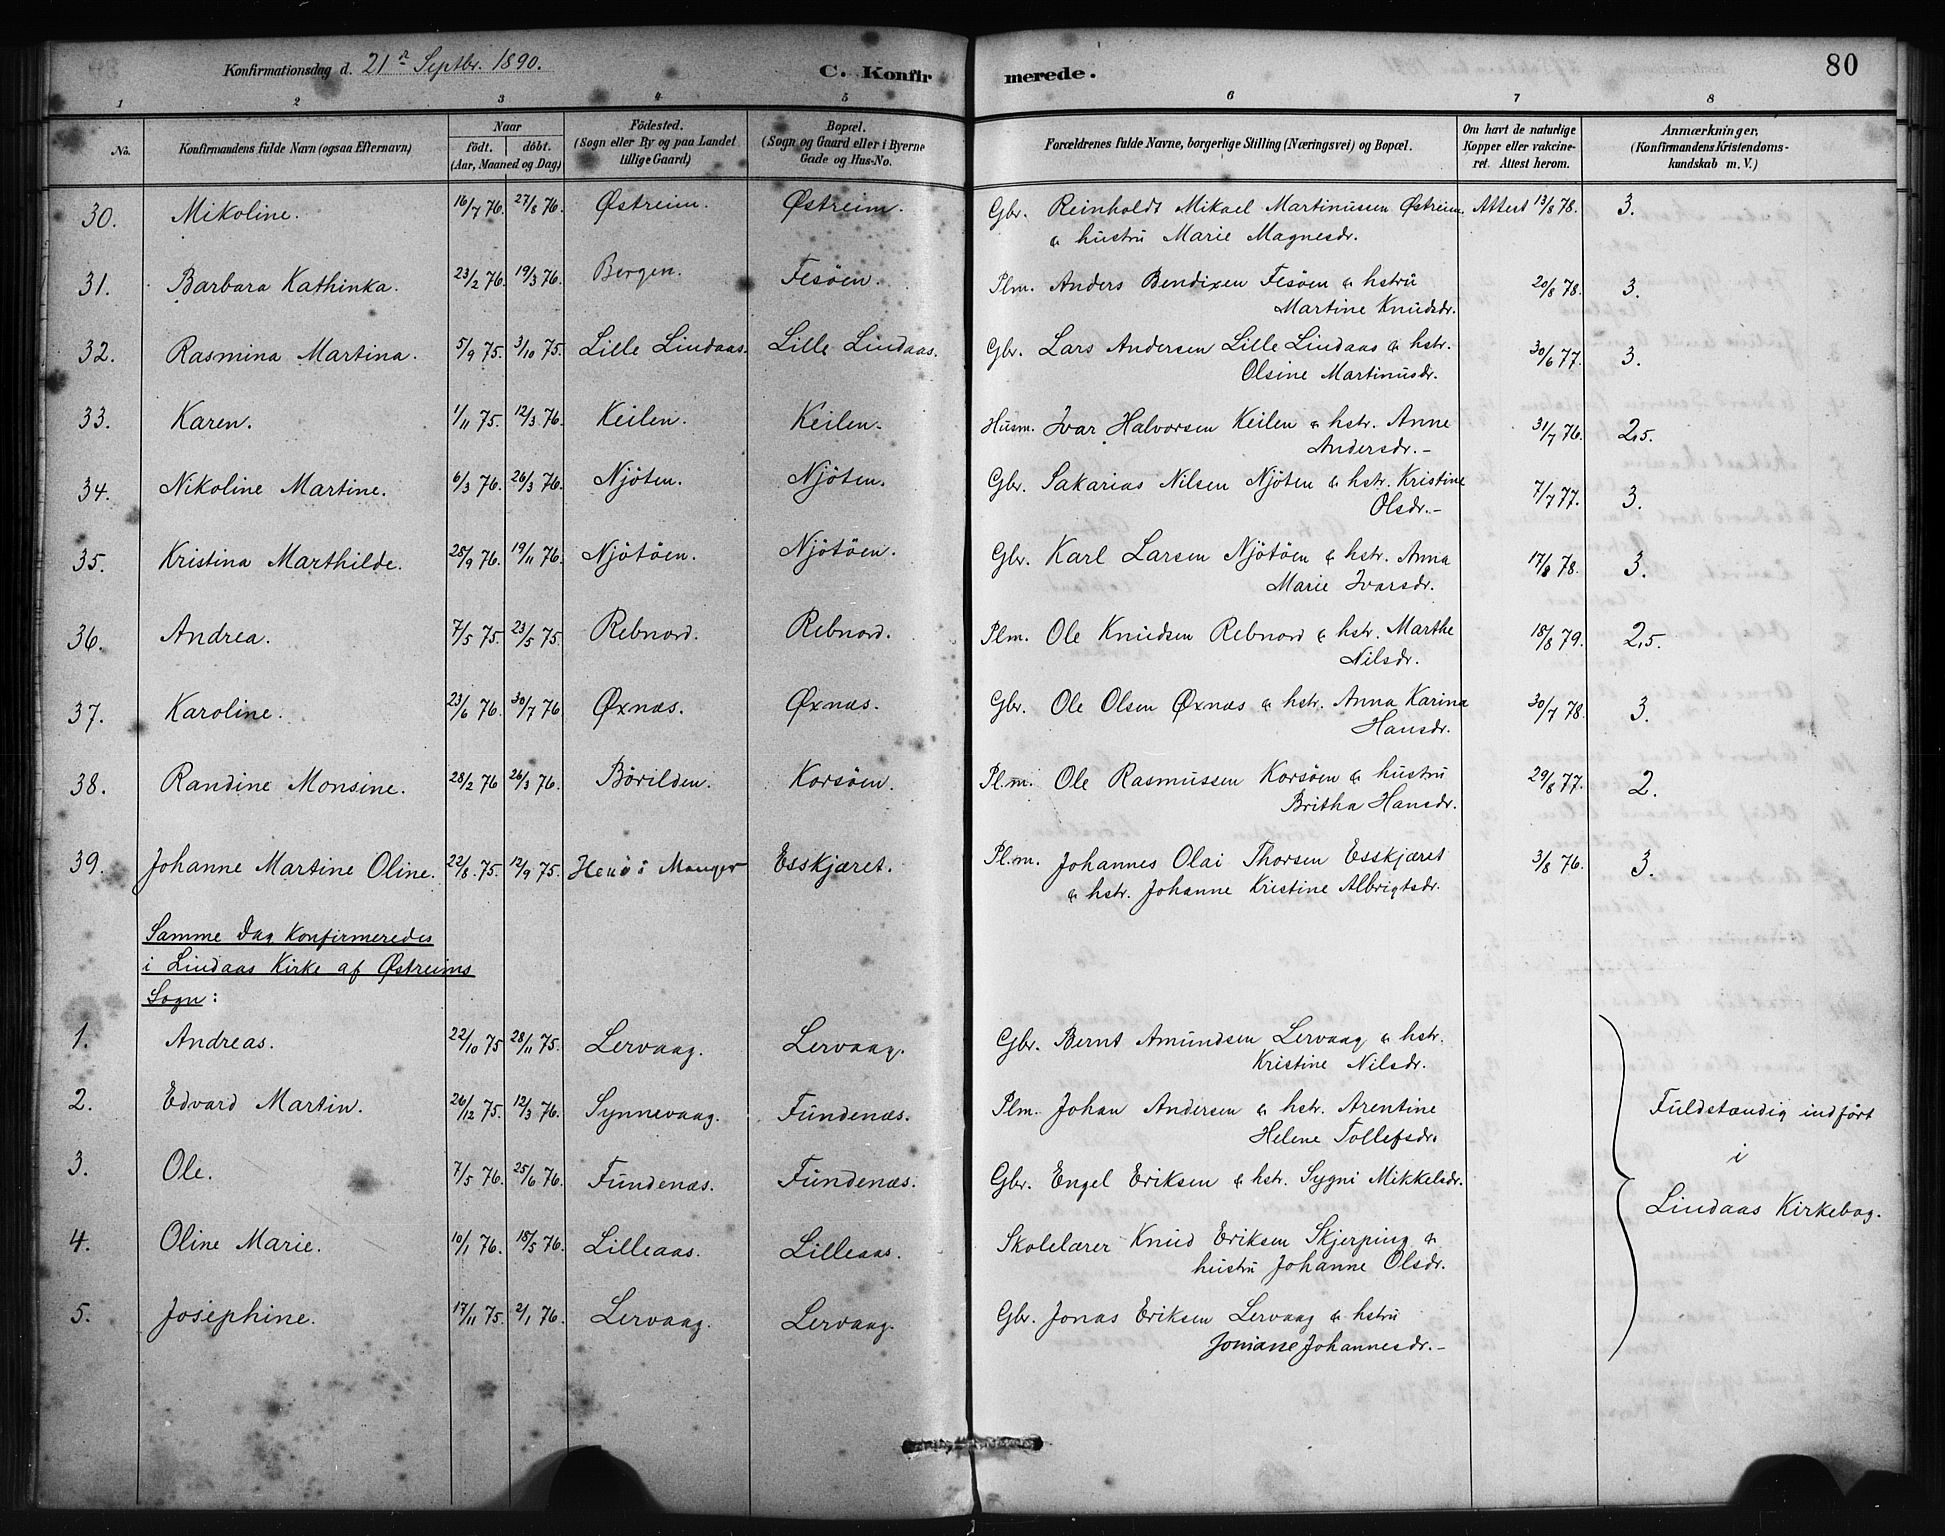 Konfirmationsdag d. 21de Septbr. 1890. C. Konfirmerede. 80
1 2 3 4 5 6 7 8
No. Konfirmandens fulde Navn (ogsaa Efternavn) Naar födt. döbt. (Aar, Maaned og Dag) Födested. (Sogn eller By og paa Landet tillige Gaard) Bopæl. (Sogn og Gaard eller i Byerne Gade og Hus-No. Forældrenes fulde Navne, borgerlige Stilling (Næringsvei) og Bopæl. Om havt de naturlige Kopper eller vakcineret. Attest herom. Anmærkninger. (Konfirmandens Kristendomskundskab m. V.)
30. Mikoline. 16/7 76. 27/8 76. Østreim. Østreim. Gbr. Reinholdt Mikael Martinussen Østreim. Attest 13/8 78. 3.
& hustrü Marie Magnesdr.
31. Barbara Kathinka. 23/2 76. 19/3 76. Bergen. Fesöen. Plm. Anders Bendixen Fesöen & hstrü 20/8 78. 3.
Martine Knüdsdr.
32. Rasmina Martina. 5/9 75. 3/10 75. Lille Lindaas. Lille Lindaas. Gbr. Lars Andersen Lille Lindaas & hstr. 30/6 77. 3.
Olsine Martinusdr.
33. Karen. 1/11 75. 12/3 76. Keilen. Keilen. Husm. Ivar Halvorsen Keilen & hstr. Anne 31/7 76. 2,5.
Andersdr.-
34. Nikoline Martine. 6/3 76. 26/3 76. Njöten. Njöten. Gbr. Sakarias Nilsen Njöten & hstr. Kristine 7/7 77. 3.
Olsdr.-
35. Kristina Marthilde. 28/9 76. 19/11 76. Njötöen. Njötöen. Gbr. Karl Larsen Njötöen & hstr. Anna 17/8 78. 3.
Marie Ivarsdr.
36. Andrea. 7/5 75. 23/5 75. Rebnord. Rebnord. Plm. Ole Knüdsen Rebnord & hstr. Marthe 18/8 79. 2,5.
Nilsdr.
37. Karoline. 23/6 76. 30/7 76 Øxnæs. Øxnæs. Gbr. Ole Olsen Øxnæs & hstr. Anna Karina 30/7 78. 3.
Hansdr.
38. Randine Monsine. 28/2 76 26/3 76. Börilden. Korsöen. Pl.m. Ole Rasmussen Korsöen & hustrü 29/8 77. 2.
Britha Hansdr.
39. Johanne Martine Oline. 22/8 75. 12/9 75. Henö i Manger Esskjæret. Pl.m. Johannes Olai Thorsen Esskjæret 3/8 76. 3.
& hstr. Johanne Kristine Albrigtsdr.
Samme Dag Konfirmeredes
i Lindaas Kirke af Østreims
Sogn:
1. Andreas. 22/10 75 28/11 75. Lervaag. Lervaag. Gbr. Bernt Amündsen Lervaag & hstr.
Kristine Nilsdr.
2. Edvard Martin. 26/12 75. 12/3 76. Synnevaag. Fündenæs. Plm. Johan Andersen & hstr. Arentine Füldstændig indfört
Helene Tollefsdr.
i
3. Ole. 7/5 76. 25/6 76. Fündenæs. Fündenæs. Gbr. Engel Eriksen & hstr. Sygni Mikkelsdr.
Lindaas Kirkebog.
4. Oline Marie. 10/1 76. 15/5 76. Lilleaas. Lilleaas. Skolelærer Knüd Eriksen Skjerping &
hüstrü Johanne Olsdr.
5. Josephine. 17/11 75. 2/1 76. Lervaag. Lervaag. Gbr. Jonas Eriksen Lervaag & hstrü
Joniane Johannesdr.-